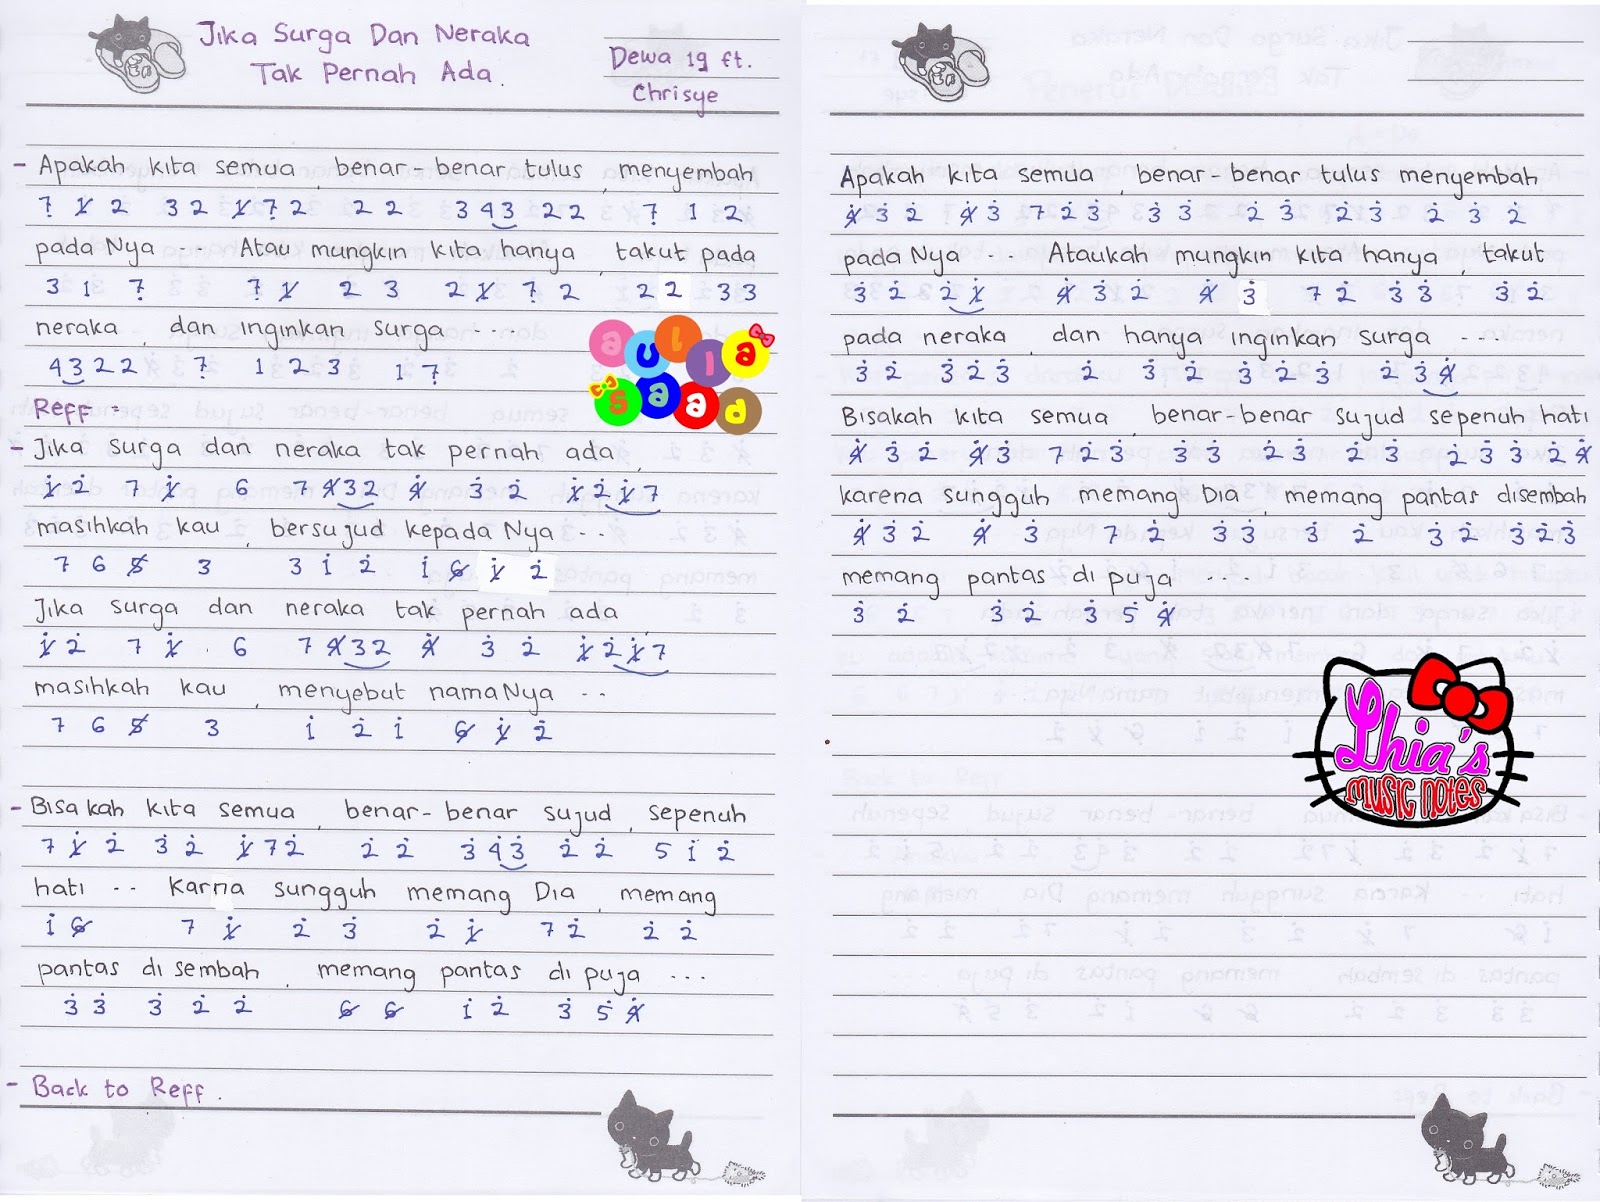 Jika Surga Dan Neraka
Tak Pernah Ada.
Dewa 19 ft.
Chrisye
- Apakah kita semua, benar-benar tulus, menyembah
7̣ 1̸ 2 3 2 1̸ 7̣ 2 2 2 3 4 3 2 2 7̣ 1 2
pada Nya --- Atau mungkin kita hanya, takut pada
3 1 7̣ 7̣ 1̸ 2 3 2 1̸ 7̣ 2 2 2 3 3
neraka, dan inginkan surga ----
4 3 2 2 7̣ 1 2 3 1 7̣
Reff :
- Jika surga dan neraka tak pernah ada,
1̸̇ 2̇ 7 1̸̇ 6 7 4̸ 3 2 4̸̇ 3̇ 2̇ 1̸̇ 2̇ 1̸̇ 7
masihkah kau, bersujud kepada Nya --
7 6 5̸ 3 3 1̇ 2̇ 1̇ 6̸ 1̸̇ 2̇
Jika surga dan neraka tak pernah ada,
1̸̇ 2̇ 7 1̸̇ 6 7 4̸ 3 2 4̸̇ 3̇ 2̇ 1̸̇ 2̇ 1̸̇ 7
masihkah kau, menyebut namaNya --
7 6 5̸ 3 1̇ 2̇ 1̇ 6̸ 1̸̇ 2̇
- Bisakah kita semua, benar-benar sujud, sepenuh
7 1̸̇ 2̇ 3̇ 2̇ 1̸̇ 7 2̇ 2̇ 2̇ 3̇ 4̇ 3̇ 2̇ 2̇ 5 1̇ 2̇
hati -- Karna sungguh memang Dia, memang
1̇ 6̸ 7 1̸̇ 2̇ 3̇ 2̇ 1̸̇ 7 2̇ 2̇ 2̇
pantas di sembah, memang pantas di puja ---
3̇ 3̇ 3̇ 2̇ 2̇ 6̸ 6̸ 1̇ 2̇ 3̇ 5̇ 4̸̇
- Back to Reff.
aulia
saad
Apakah kita semua, benar-benar tulus menyembah
4̸̇ 3̇ 2̇ 4̸̇ 3̇ 7 2̇ 3̇ 3̇ 3̇ 2̇ 3̇ 2̇ 3̇ 2̇ 3̇ 2̇
pada Nya --- Ataukah mungkin kita hanya, takut
3̇ 2̇ 2̇ 1̸̇ 4̸̇ 3̇ 2̇ 4̸̇ 3̇ 7 2̇ 3̇ 3̇ 3̇ 2̇
pada neraka, dan hanya inginkan surga ---
3̇ 2̇ 3̇ 2̇ 3̇ 2̇ 3̇ 2̇ 3̇ 2̇ 3̇ 2̇ 3̇ 4̸̇
Bisakah kita semua, benar-benar sujud sepenuh hati
4̸̇ 3̇ 2̇ 4̸̇ 3̇ 7 2̇ 3̇ 3̇ 3̇ 2̇ 3̇ 2̇ 3̇ 2̇ 3̇ 3̇ 2̇ 4̸̇
karena sungguh memang Dia, memang pantas disembah
4̸̇ 3̇ 2̇ 4̸̇ 3̇ 7 2̇ 3̇ 3̇ 3̇ 2̇ 3̇ 2̇ 3̇ 2̇ 3̇
memang pantas di puja ----
3̇ 2̇ 3̇ 2̇ 3̇ 5̇ 4̸̇
Lhia's
music notes